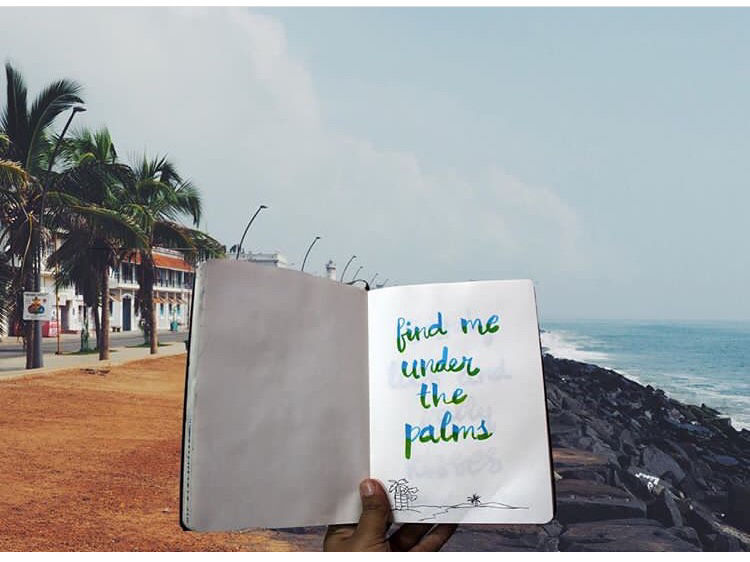 find me
under
the
palms